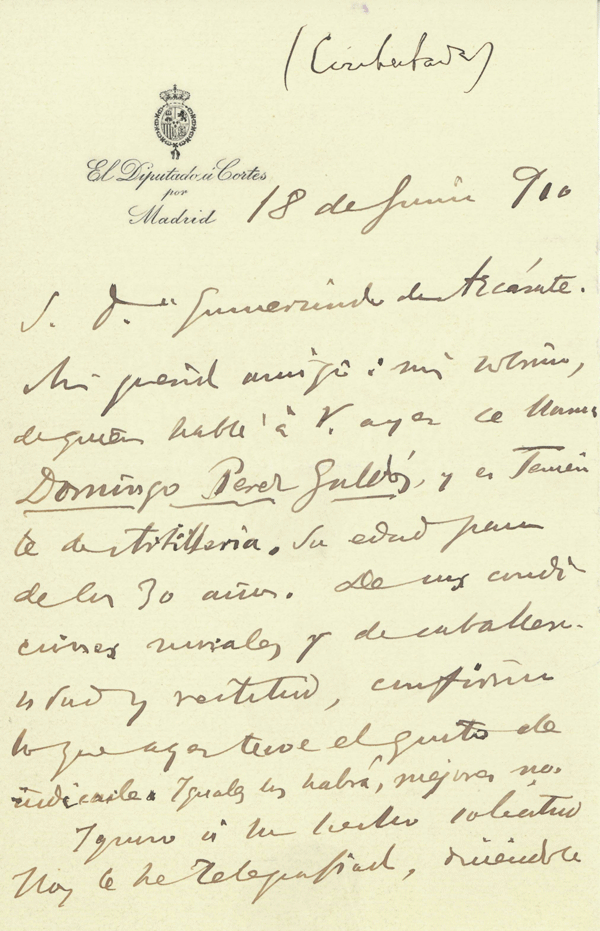 (Contestada)
El Diputado á Cortes
por
Madrid
18 de Junio 910
S. D.n Gumersindo de Azcárate.
Mi querido amigo: mi sobrino,
de quien hablé á V. ayer se llama
Domingo Perez Galdós, y es Tenien
te de Artilleria. Su edad pasa
de los 30 años. De sus condi
ciones morales y de caballero-
sidad y rectitud, confirmo
lo que ayer tuve el gusto de
indicarle. Iguales los habrá, mejores no.
Ignoro si ha hecho solicitud
Hoy le he telegrafiado, diciéndole